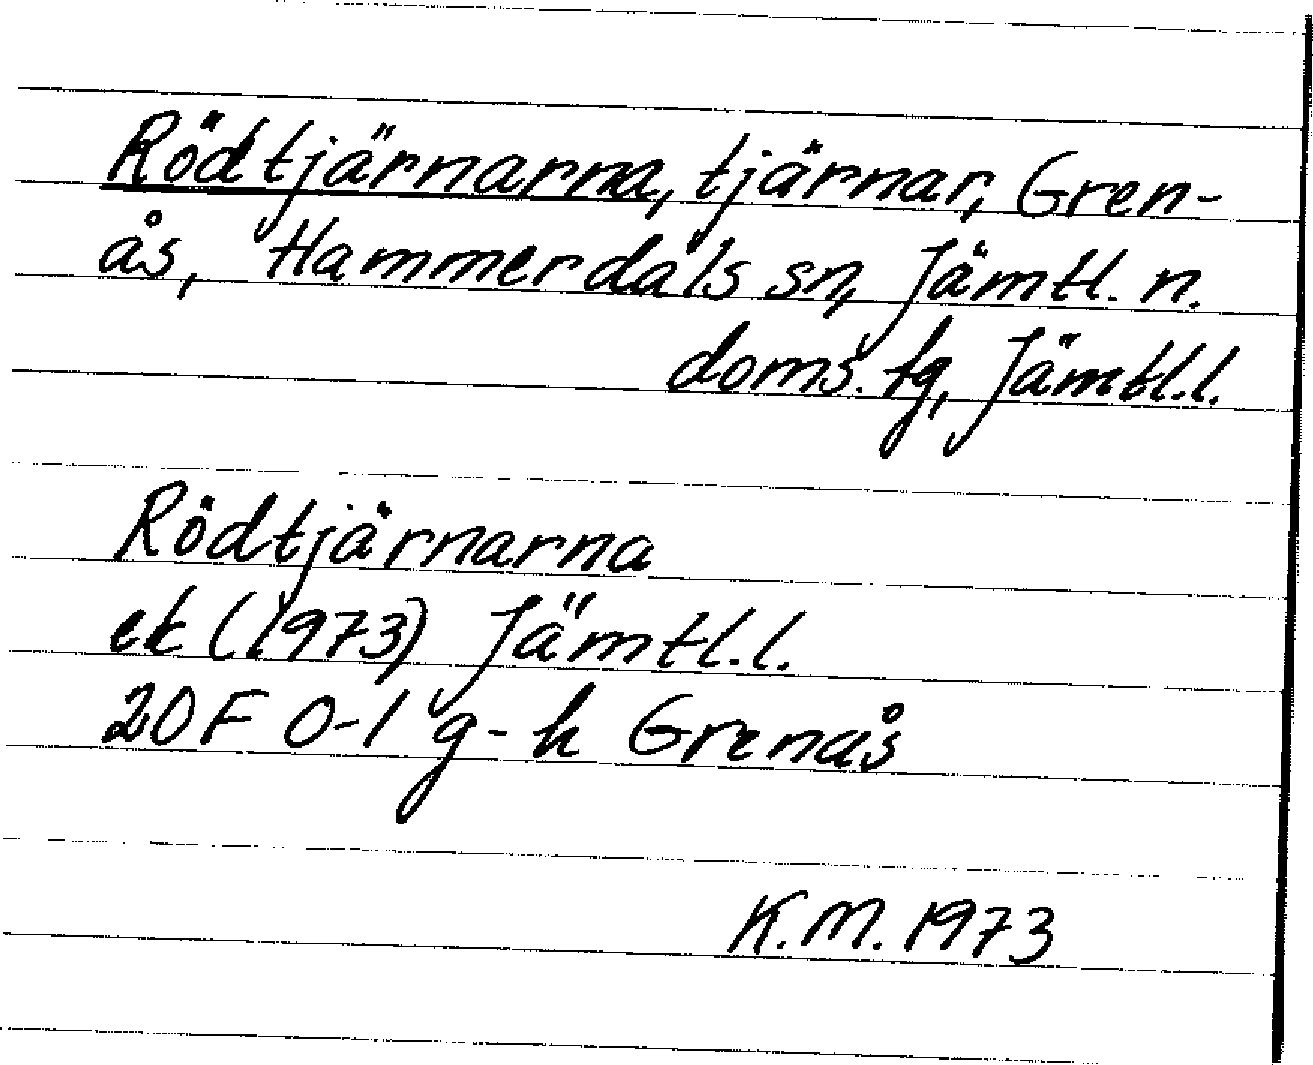 Rödtjärnarna, tjärnar, Gren-
ås, Hammerdals sn, Jämtl. n.
doms. fg, Jämtl.l.
Rödtjärnarna
ek (1973) Jämtl.l.
20F 0-1 g-h Grenås
K.M. 1973